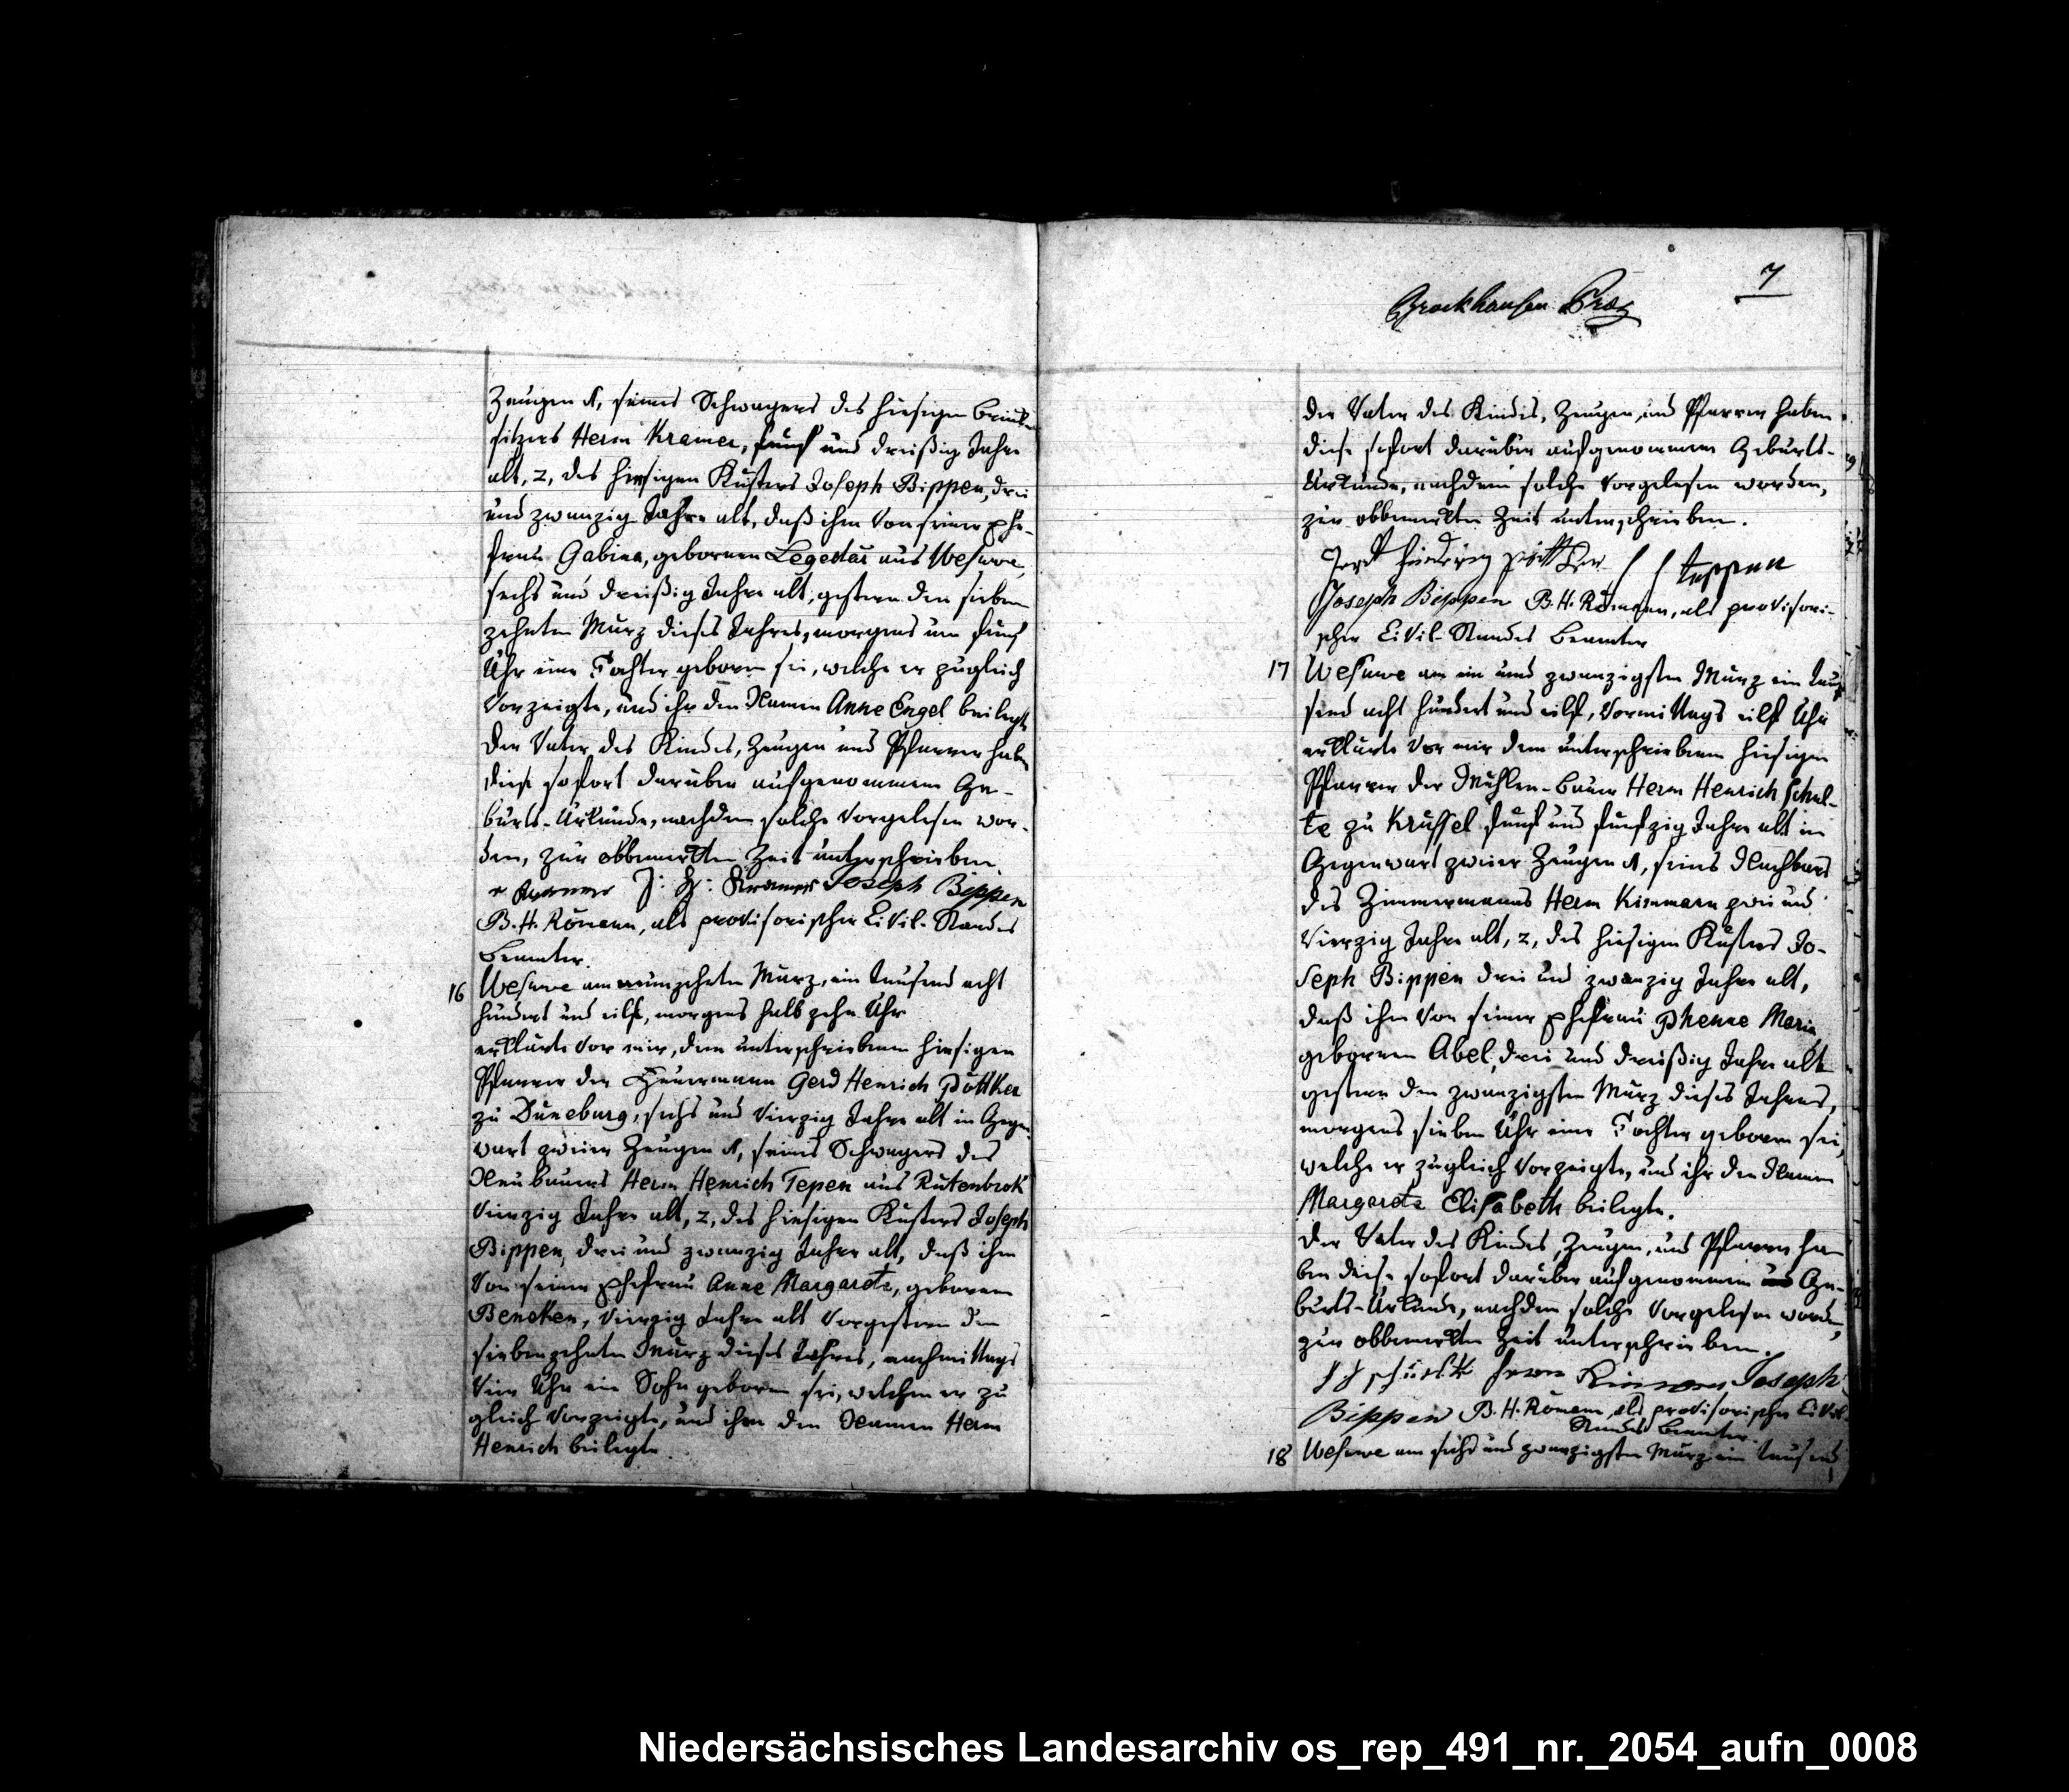 Zeugen 1, seines Schwagers des hiesigen Brink-
sitzers Herm Kramer, fünf und dreißig Jahre
alt, 2, des hiesigen Küsters Joseph Bippen, drei
und zwanzig Jahre alt, daß ihm von seiner Ehe-
frau Gabina, gebornen aus Wesuwe,
sechs und dreißig Jahre alt, gestern den sieben
zehnten März dieses Jahres, morgens um fünf
Uhr eine Tochter geboren sei, welche er zugleich
vorzeigte, und ihr den Namen Anne Engel beilegte
Der Vater des Kindes, Zeugen und Pfarrer haben
diese sofort darüber aufgenommene Ge-
burts-Urkunde, nachdem solche vorgelesen wor-
den, zur obbemerkten Zeit unterschrieben
Kramer J: H: Kramer Joseph Bippen
B. H. Römann, als provisorischer Civil-Standes
Beamter.
16 Wesuwe am neunzehnten März, ein tausend acht
hundert und eilf, morgens halb zehn Uhr
erklärte vor mir, dem unterschriebenen hiesigen
Pfarrer der Heuermann Gerd Henrich Pöttker
zu Düneburg, sechs und vierzig Jahre alt in Gegen-
wart zweier Zeugen 1, seines Schwagers des
Neubauers Herm Henrich Tepen aus Rutenbrok
vierzig Jahre alt, 2, des hiesigen Küsters Joseph
Bippen, drei und zwanzig Jahre alt, daß ihm
von seiner Ehefrau Anne Margareta, gebornen
Bencken, vierzig Jahre alt vorgestern den
siebenzehnten März dieses Jahres, nachmittags
vier Uhr ein Sohn geboren sei, welchen er zu
gleich vorzeigte, und ihm den Namen Herm
Henrich beilegte
7
Brockhausen
der Vater des Kindes, Zeugen, und Pfarrer haben
diese sofort darüber aufgenommene Geburts-
Urkunde, nachdem solche vorgelesen worden,
zur obbemerkten Zeit unterschrieben.
Gerd Hinderig H H teppen
Joseph Bippen B. H. Römann, als provisori-
scher Civil-Standes Beamter
17 Wesuwe am ein und zwanzigsten März ein tau-
send acht hundert und eilf, vormittags eilf Uhr
erklärte vor mir dem unterschriebenen hiesigen
Pfarrer der Mühlen-Bauer Herm Henrich Schul-
te zu Krüssel fünf und funfzig Jahre alt in
Gegenwart zweier Zeugen 1, seines Nachbars
des Zimmermanns Herm Kinmann zwei und
vierzig Jahre alt, 2, des hiesigen Küsters Jo-
seph Bippen drei und zwanzig Jahre alt,
daß ihm von seiner Ehefrau Maria
gebornen Abel, drei und dreißig Jahre alt
gestern den zwanzigsten März dieses Jahres,
morgens sieben Uhr eine Tochter geboren sei,
welche er zugleich vorzeigte, und ihr den Namen
Margareta Elisabeth beilegte.
Der Vater des Kindes, Zeugen, und Pfarrer ha-
ben diese sofort darüber aufgenommene Ge-
burts-Urkunde, nachdem solche vorgelesen worden,
zur obbemerkten Zeit unterschrieben.
H H schulte Herm Joseph
Bippen B. H. Römann, als provisorischer Civil-
Standes Beamter.
18 Wesuwe am sechs und zwanzigsten März ein tausend
Niedersächsisches Landesarchiv os_rep_491_nr._2054_aufn_0008